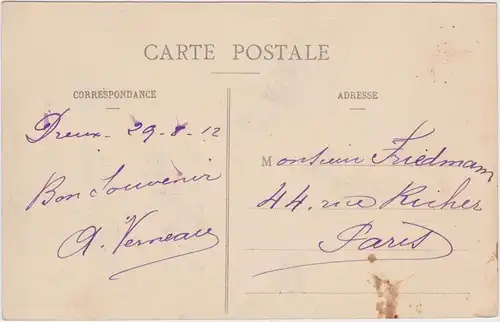 CARTE POSTALE
CORRESPONDANCE
Dreux - 29-8-12
Bon Souvenir
A. Verneau
ADRESSE
Monsieur Friedmann
44. rue Richer
Paris